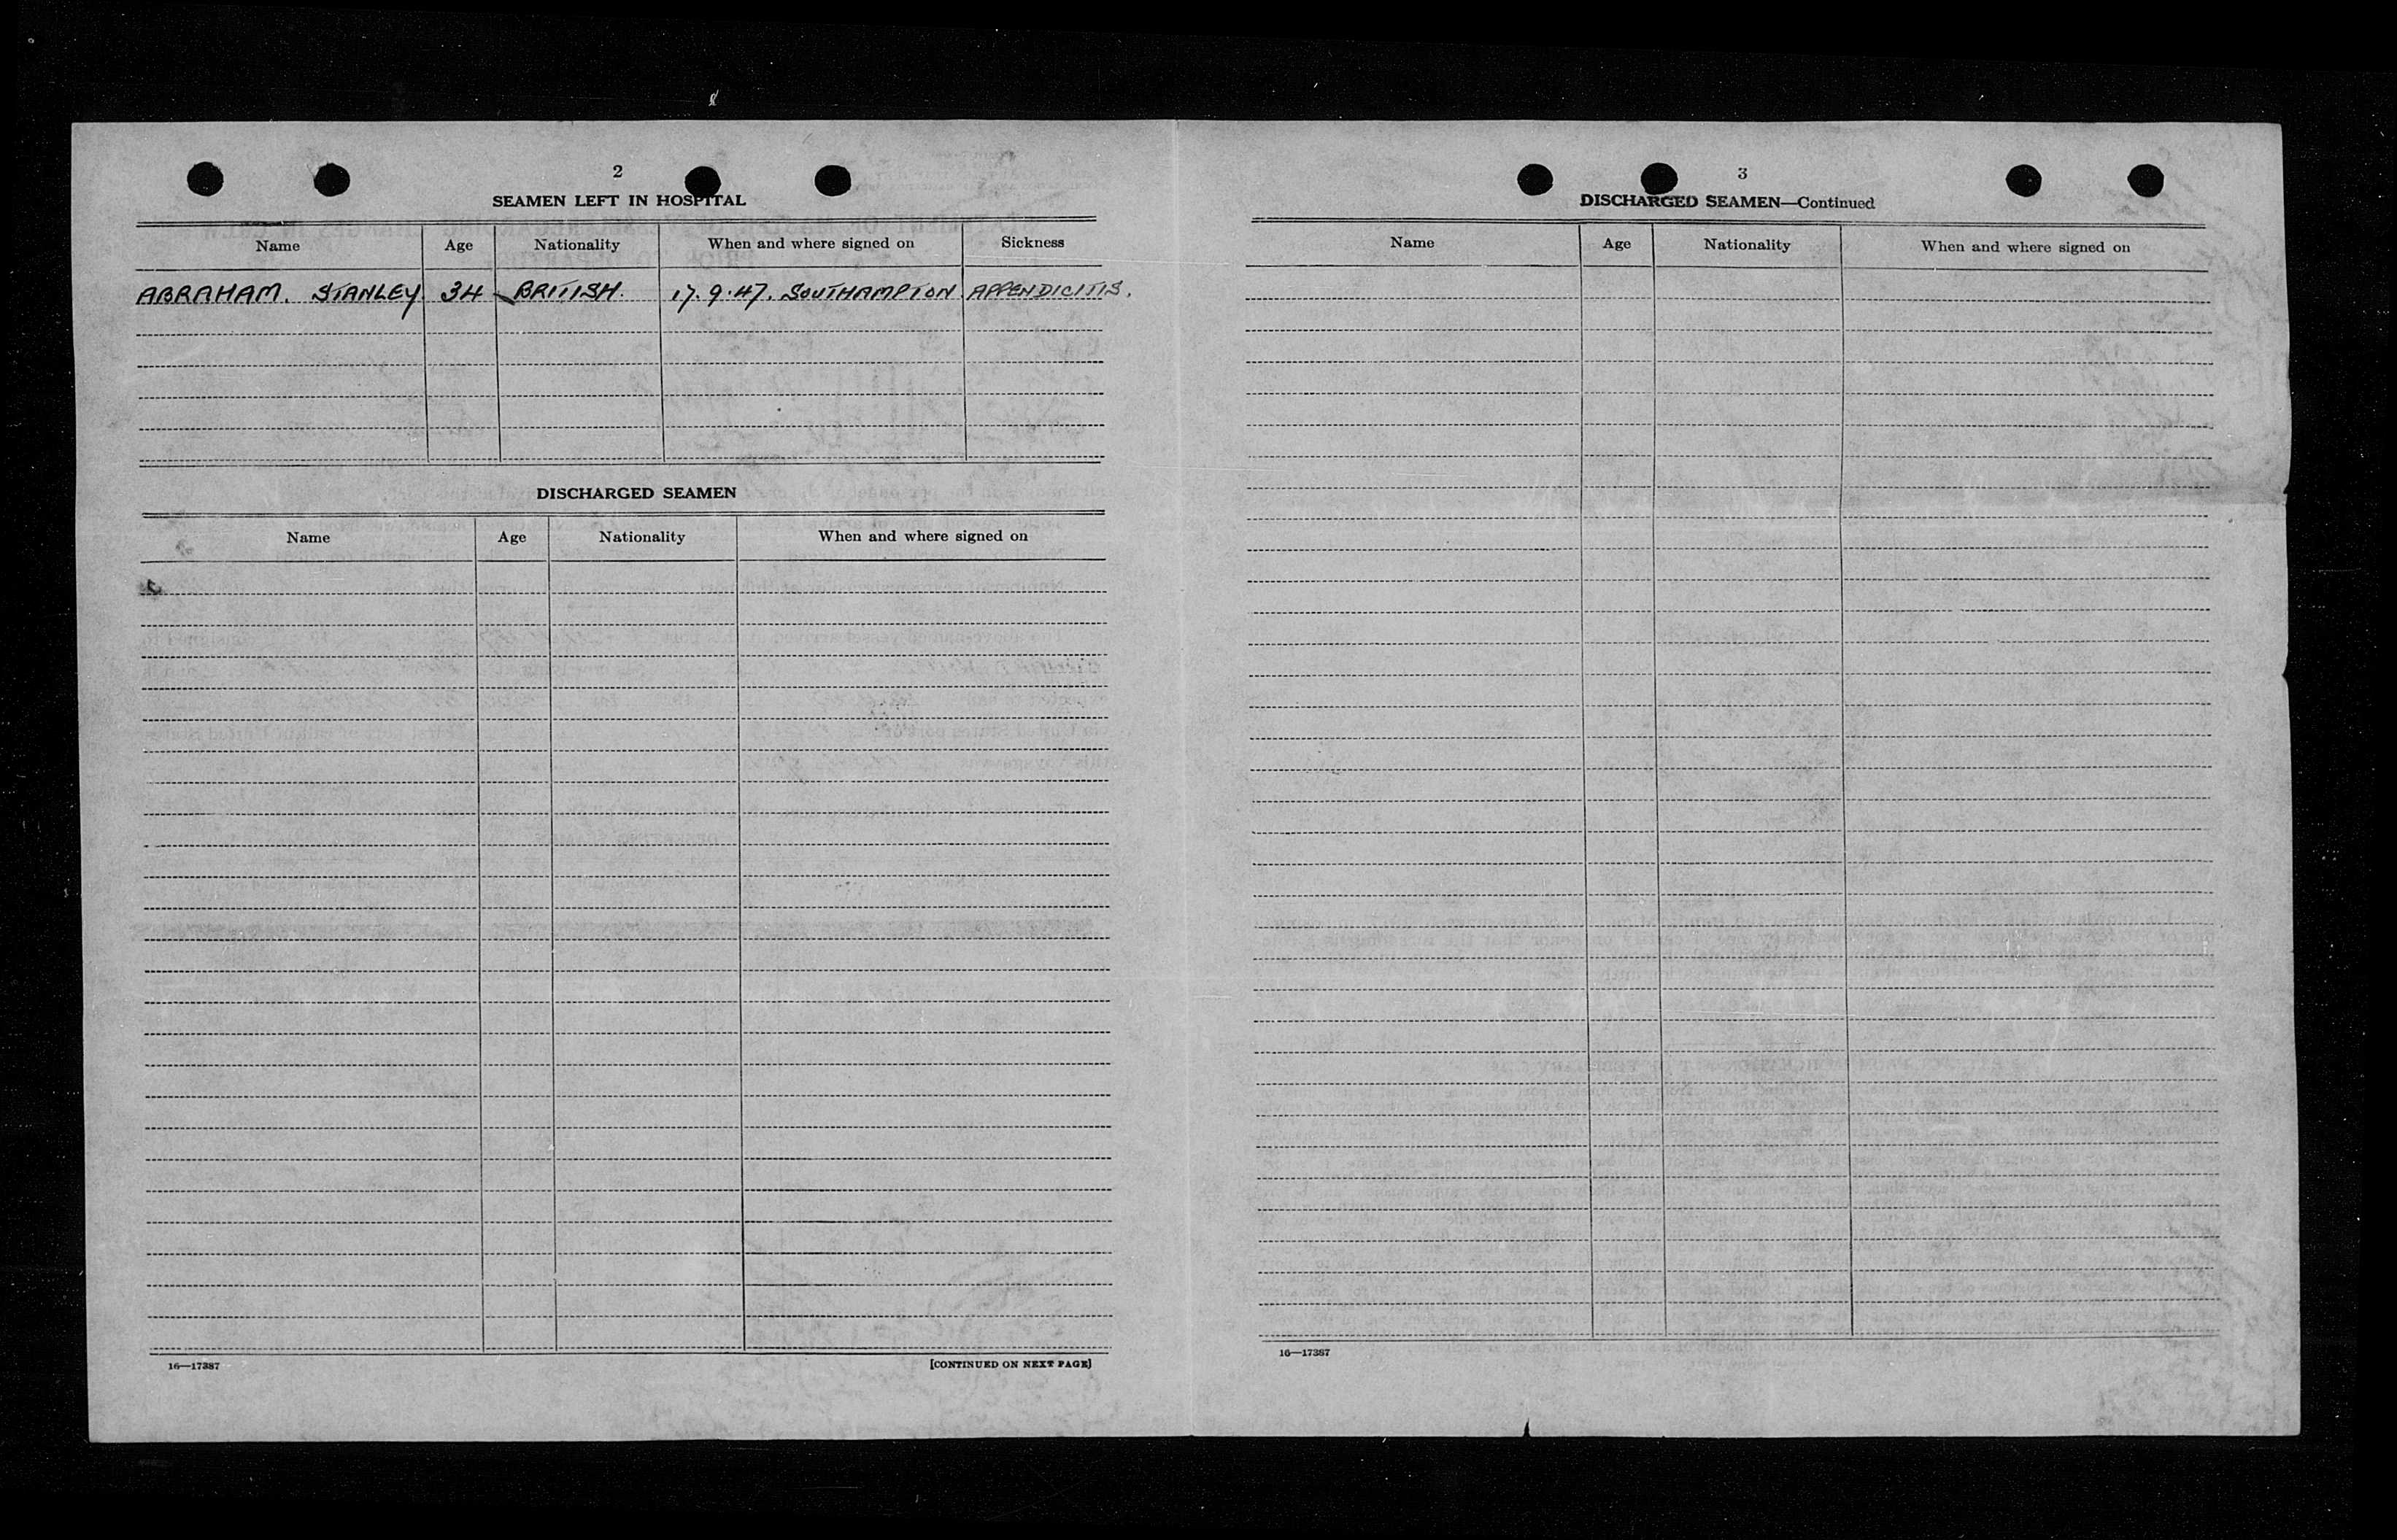 2
SEAMEN LEFT IN HOSPITAL
Name Age Nationality When and where signed on Sickness
ABRAHAM. STANLEY. 34 BRITISH. 17.9.47. SOUTHAMPTON. APPENDICITIS.
DISCHARGED SEAMEN
Name Age Nationality When and where signed on
16—17387
[CONTINUED ON NEXT PAGE]
3
DISCHARGED SEAMEN—Continued
Name Age Nationality When and where signed on
16—17387